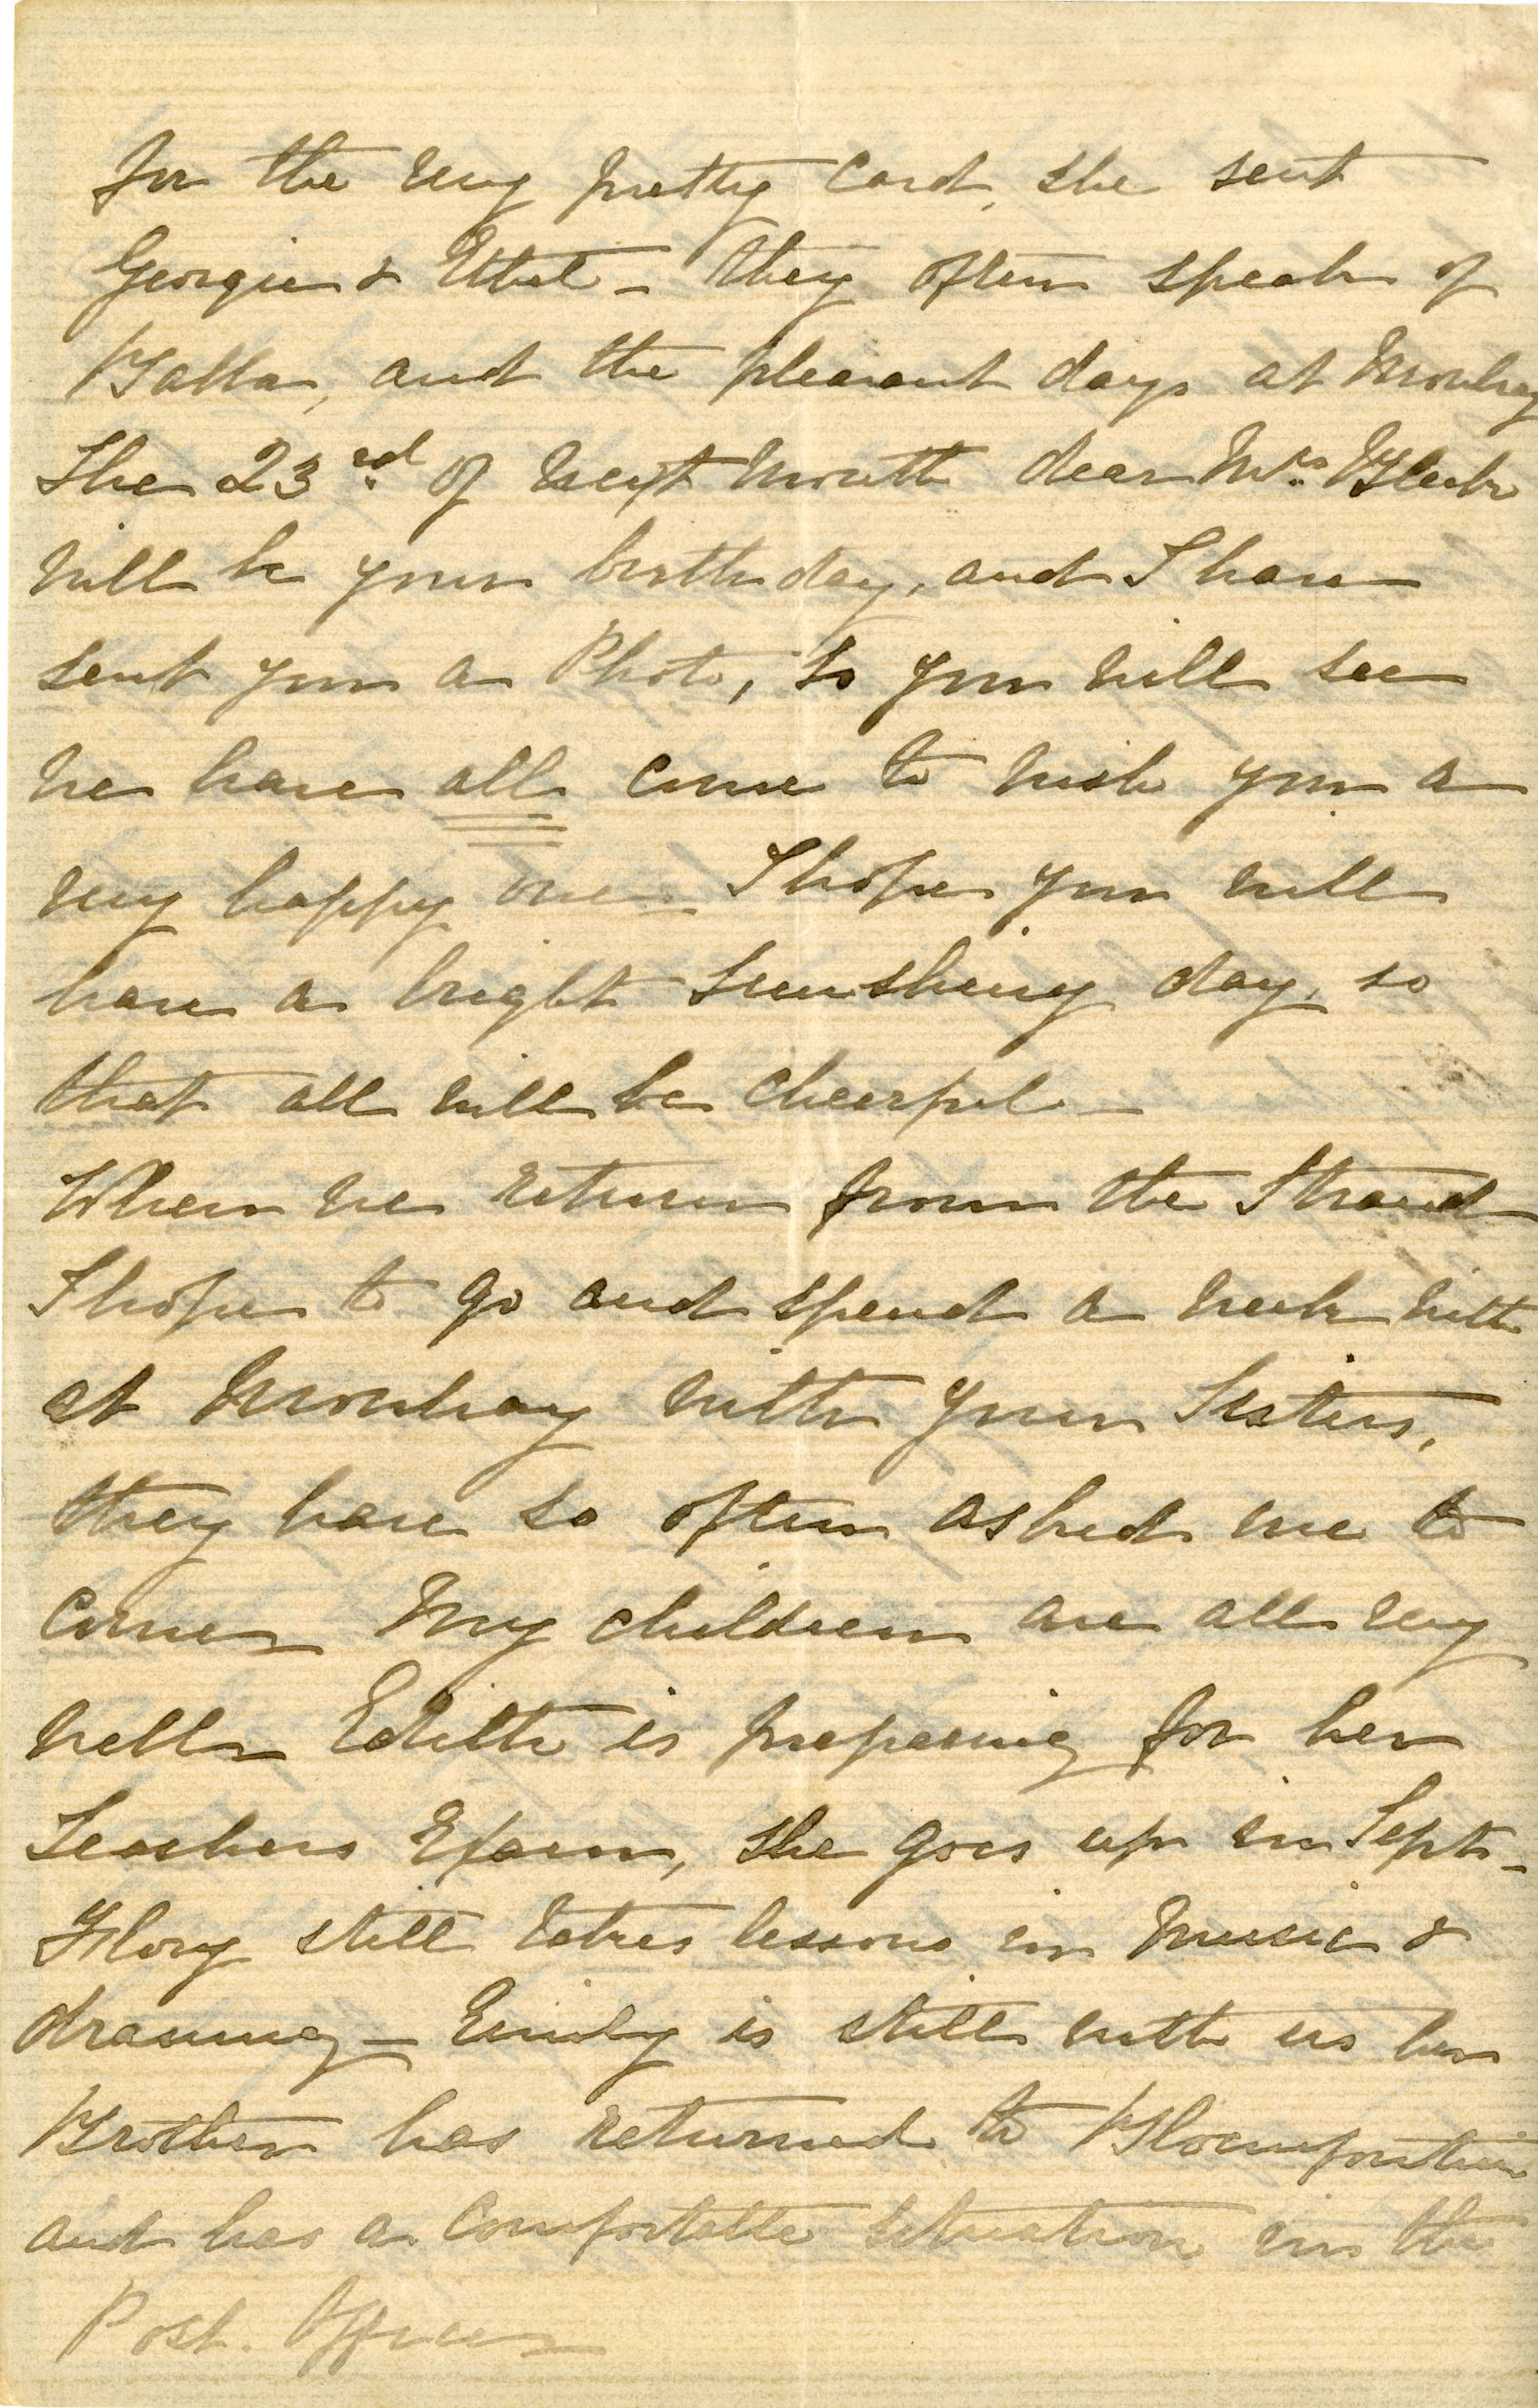 for the very pretty card, she sent
Georgie & Ethel – they often speak of
Balla, and the pleasant days at Mowbray
The 23rd of next month dear Mrs. Bleek
will be your birthday, and I have
sent you a Photo, so you will see
we have all come to wish you a
very happy one – I hope you will
have a bright sunshiny day, so
that all will be cheerful –
When we return from the Strand
I hope to go and spend a week with
at Mowbray with your Sisters,
they have so often asked me to
come – My children are all very
well – Edith is preparing for her
Teachers Exam, she goes up in Sept –
Flory still takes lessons in Music &
drawing – Emily is still with us her
Brother has returned to Bloemfontein
and has a comfortable situation in the
Post. Office –